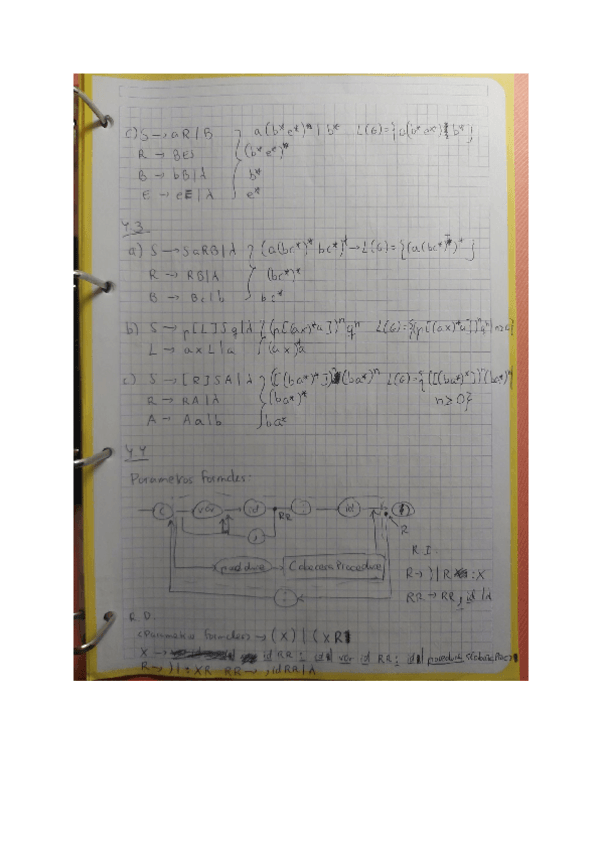 c) S → aR | B } a(b*e*)* | b* L(G)={a(b*e*)*|b*}
R → BES (b*e*)*
B → bB | λ b*
E → eE | λ e*
4.3
a) S → SaRB | λ } (a(bc*)* bc*)* → L(G)={(a(bc*)+)*}
R → RB | λ (bc*)*
B → Bc | b bc*
b) S → p[L]Sq | λ } (p[(ax)*a])ⁿqⁿ L(G)={(p[(ax)*a])ⁿqⁿ | n≥0}
L → axL | a (ax)*a
c) S → [R]SA | λ } ([(ba*)*])ⁿ(ba*)ⁿ L(G)={([(ba*)*])ⁿ(ba*)ⁿ
R → RA | λ (ba*)* n≥0}
A → Aa | b ba*
4.4
Parametros formales:
( var id RR : id )
, R
procedure Cabecera Procedure
;
R I:
R → ) | R : X
RR → RR , id | λ
R. D.
<Parametros formales> → (X) | (XR
X → id RR : id | var id RR : id | procedure
R → ) | ; XR RR → , id RR | λ